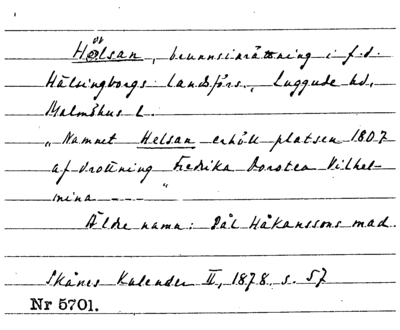 Hälsan, brunnsinrättning i f.d.
Hälsingborgs landsförs., Luggude hd,
Malmöhus l.
"Namnet Helsan erhöll platsen 1807
af drottning Fredrika Dorotea Vilhel-
mina ---- "
Äldre namn: Pål Håkanssons mad.
Skånes Kalender II, 1878 s. 57
Nr 5701.